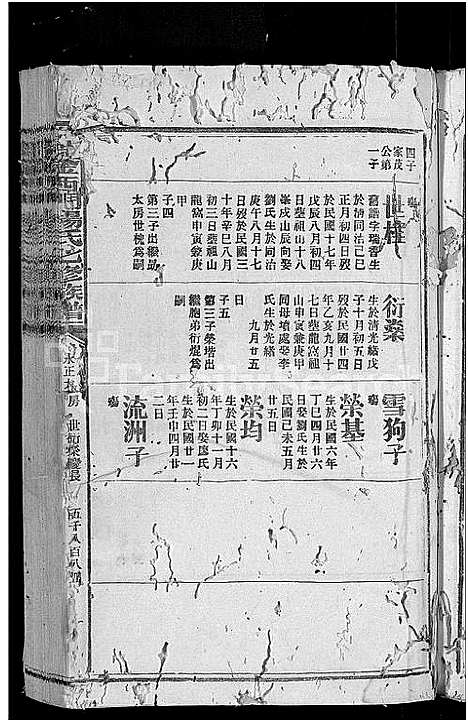 四子
家茂
公弟
一子
世桂
舊諱字瑞香生
於清同治己巳
正月初四日歿
於民國十七年
戊辰八月初四
日葬祖山十八
峯戌山辰向娶
劉氏生於同治
庚午八月十七
日歿於民國三
十年辛巳八月
初三日葬祖山
龍窩申寅兼庚
甲
子四
第三子出繼
太房世槐為嗣
衍燊
生於清光緒戊
子十月初五日
歿於民國廿四
年乙亥九月十
七日葬龍窩祖
山申寅兼庚甲
同母墳處娶李
氏生於光緒
九月廿五
日
子五
第三子榮塔出
繼胞弟衍焜為
嗣
雪狗子
榮基
生於民國六年
丁巳四月廿六
日娶劉氏生於
民國己未五月
廿五日
榮均
生於民國十六
年丁卯十一月
初二日娶廖氏
生於民國廿一
年壬申四月廿
二日
流洲子
楊氏七修族譜
永正公房
五千八百八